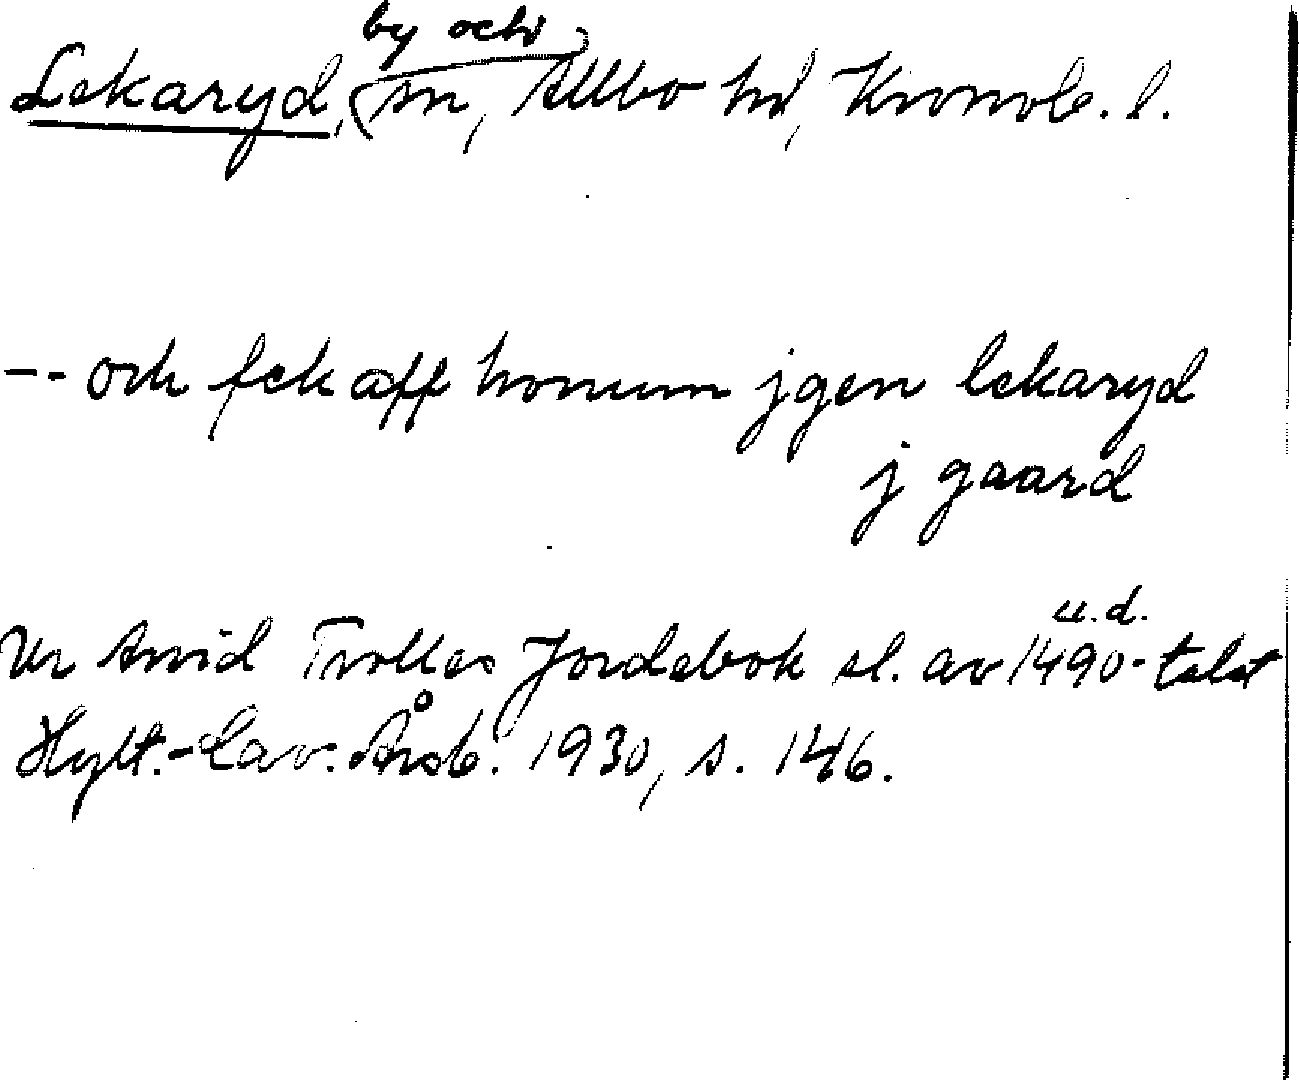 Lekaryd, by och sn, Allbo hd, Kronob. l.
-- och fek aff honum jgen lekaryd
j gaard
u.d.
Ur Arvid Trolles Jordebok sl. av 1490-talet
Hylt.-Cav. Årsb. 1930, s. 146.